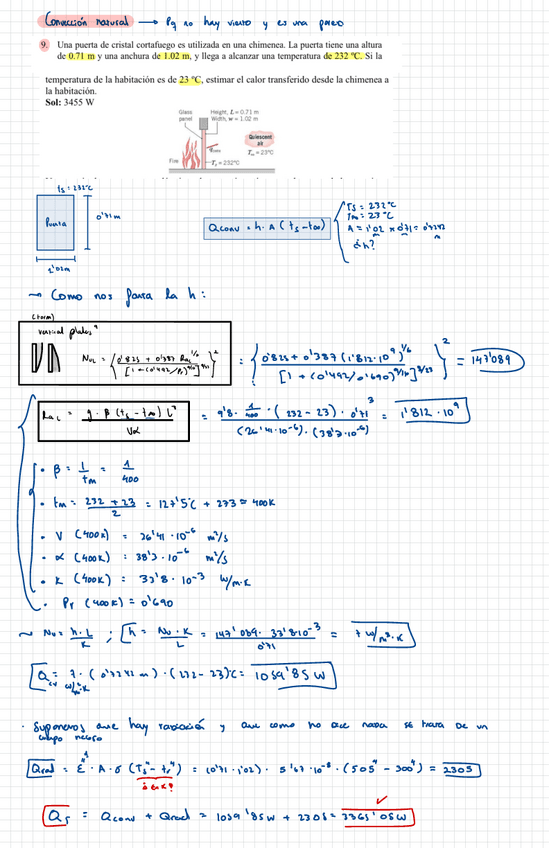 Convección natural → Pq no hay viento y es una pared
9. Una puerta de cristal cortafuego es utilizada en una chimenea. La puerta tiene una altura
de 0.71 m y una anchura de 1.02 m, y llega a alcanzar una temperatura de 232 ºC. Si la
temperatura de la habitación es de 23 ºC, estimar el calor transferido desde la chimenea a
la habitación.
Sol: 3455 W
Glass panel
Height, L = 0.71 m
Width, w = 1.02 m
Quiescent air
T∞ = 23°C
Fire
Ts = 232°C
ts = 232ºC
Puerta
0'71m
1'02m
Qconv = h · A (ts - t∞)
Ts = 232ºC
T∞ = 23ºC
A = 1'02 x 0'71 = 0'7242
m m
d h?
→ Como nos fauta la h:
vertical plates
NuL = {0'825 + 0'387 RaL^1/6 / [1 + (0'492/Pr)^9/16]^8/27}² = {0'825 + 0'387 (1'812·10⁹)^1/6 / [1 + (0'492/0'690)^9/16]^8/27}² = 147'089
RaL = g · β (ts - t∞) L³ / Vα = 9'8 · 1/400 · (232 - 23) · 0'71³ / (26'41·10⁻⁶) · (38'3·10⁻⁶) = 1'812 · 10⁹
• β = 1/tm = 1/400
• tm = 232 + 23 / 2 = 127'5ºC + 273 = 400K
• V (400K) = 26'41 · 10⁻⁶ m²/s
• α (400K) = 38'3 · 10⁻⁶ m²/s
• K (400K) = 33'8 · 10⁻³ W/m·K
• Pr (400K) = 0'690
~ Nu = h·L / K ; h = Nu · K / L = 147'089 · 33'8·10⁻³ / 0'71 = 7 W/m²·K
Qcv = 7 · (0'7242 m) · (232 - 23)ºC = 1059'85 W
W/m²·K
· Suponemos que hay radiación y que como no dice nada se trata de un
cuerpo negro
Qrad = ε · A · σ (Ts⁴ - tr⁴) = (0'71 · 1'02) · 5'67 · 10⁻⁸ · (505⁴ - 300⁴) = 2305
1
¿en K?
QT = Qconv + Qrad = 1059'85W + 2305 = 3365'05W ✓